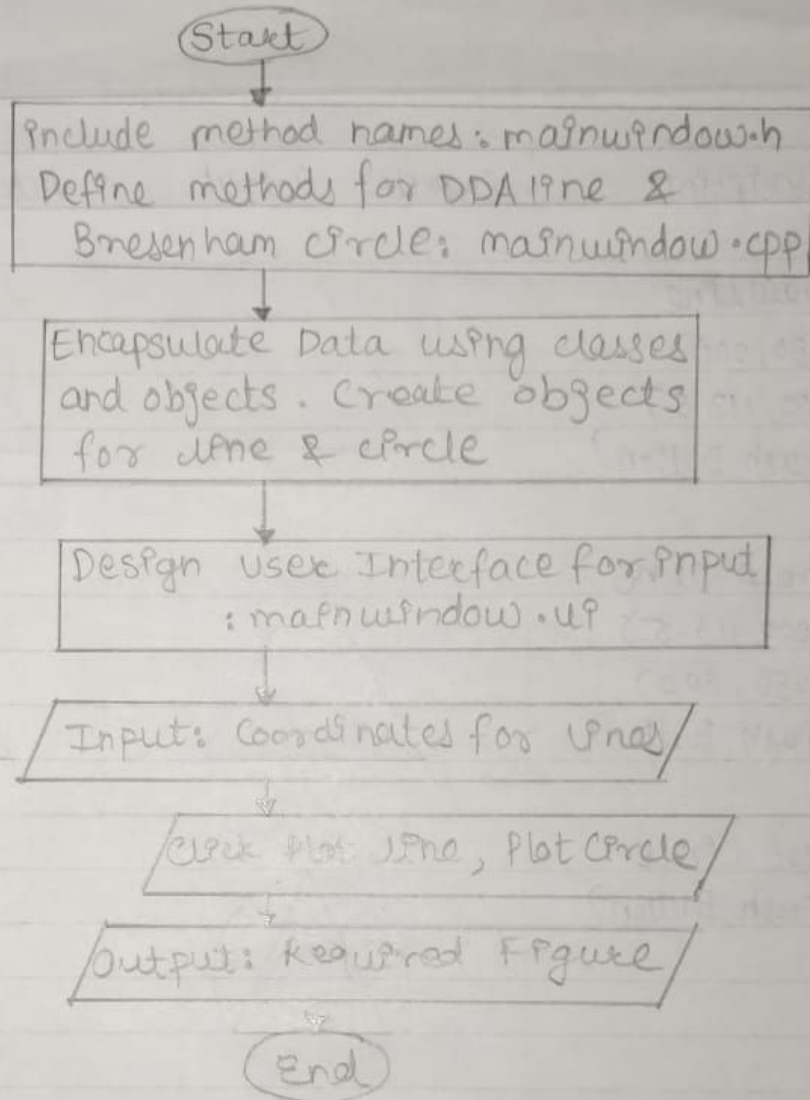 Start
include method names: mainwindow.h
Define methods for DDA line &
Bresenham circle: mainwindow.cpp
Encapsulate Data using classes
and objects. Create objects
for line & circle
Design user Interface for input
: mainwindow.ui
Input: Coordinates for lines
Click Plot line, Plot Circle
Output: Required Figure
End